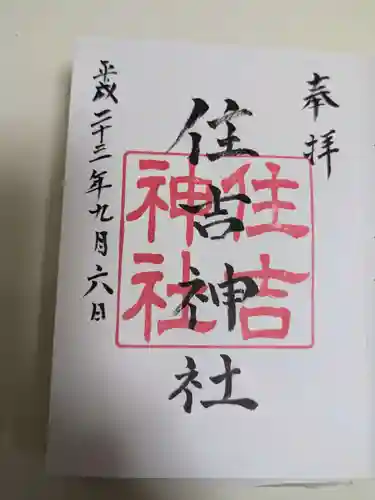 奉拝
住吉神社
住吉神社
平成二十三年九月六日